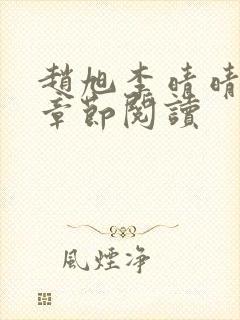 趙旭李晴晴
章節閱讀
風煙净